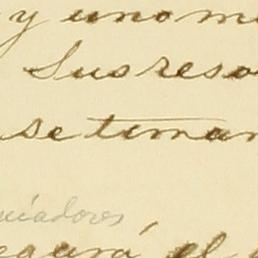 y uno m
Sus reso
se toman
ciadores
egurá el